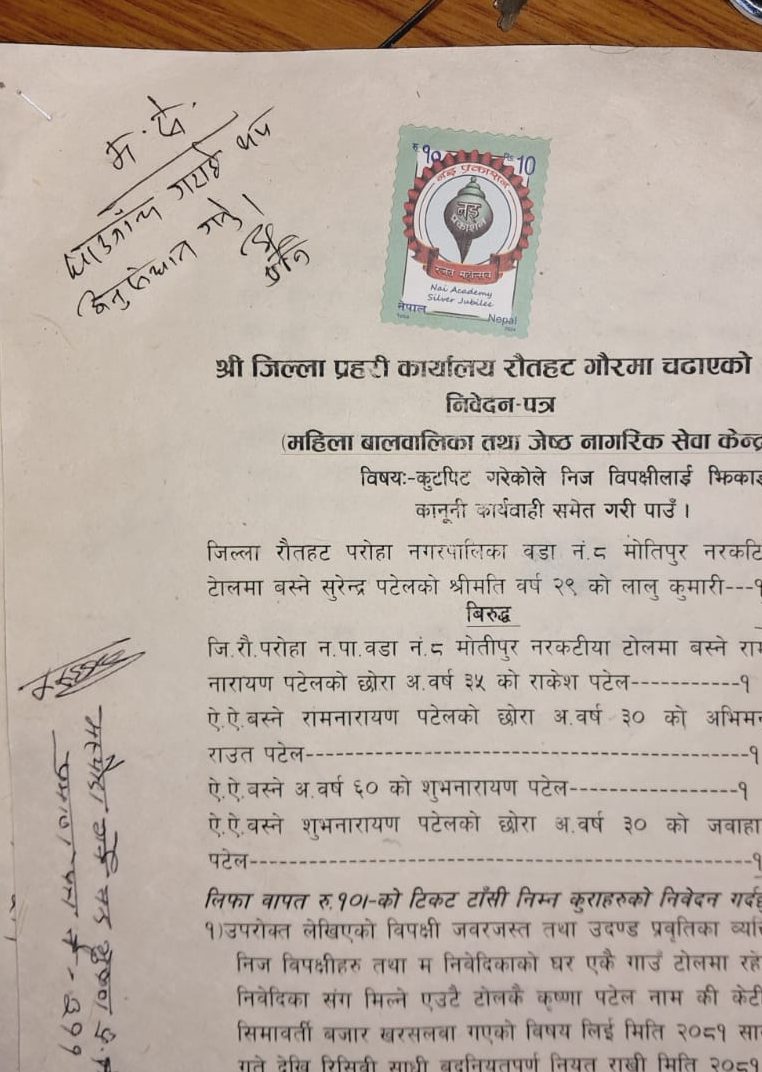 म.से.
घाउजाँच गराई थप
अनुसन्धान गर्नु।
रु.१०
Rs.10
नइ प्रकाशन
नइ
प्रकाशन
रजत महोत्सव
Nai Academy
Silver Jubilee
नेपाल
Nepal
श्री जिल्ला प्रहरी कार्यालय रौतहट गौरमा चढाएको
निवेदन-पत्र
(महिला बालवालिका तथा जेष्ठ नागरिक सेवा केन्द्र
विषयः-कुटपिट गरेकोले निज विपक्षीलाई झिकाइ
कानूनी कार्यवाही समेत गरी पाउँ ।
जिल्ला रौतहट परोहा नगरपालिका वडा नं.८ मोतिपुर नरकटि
टोलमा बस्ने सुरेन्द्र पटेलको श्रीमति वर्ष २९ को लालु कुमारी---१
बिरुद्ध
जि.रौ.परोहा न.पा.वडा नं.८ मोतीपुर नरकटीया टोलमा बस्ने राम
नारायण पटेलको छोरा अ.वर्ष ३५ को राकेश पटेल-----------१
ऐ.ऐ.बस्ने रामनारायण पटेलको छोरा अ.वर्ष ३० को अभिमन
राउत पटेल---------------------------------------------१
ऐ.ऐ.बस्ने अ.वर्ष ६० को शुभनारायण पटेल-----------------१
ऐ.ऐ.बस्ने शुभनारायण पटेलको छोरा अ.वर्ष ३० को जवाहा
पटेल--------------------------------------------------१
लिफा वापत रु.१०।-को टिकट टाँसी निम्न कुराहरुको निवेदन गर्दछ
१)उपरोक्त लेखिएको विपक्षी जवरजस्त तथा उदण्ड प्रवृतिका व्यक्ति
निज विपक्षीहरु तथा म निवेदिकाको घर एकै गाउँ टोलमा रहे
निवेदिका संग मिल्ने एउटै टोलकै कृष्णा पटेल नाम की केटी
सिमावर्ती बजार खरसलवा गएको विषय लिई मिति २०८१ सा
गते देखि रिसिवी साधी बदनियतपूर्ण नियत राखी मिति २०८१